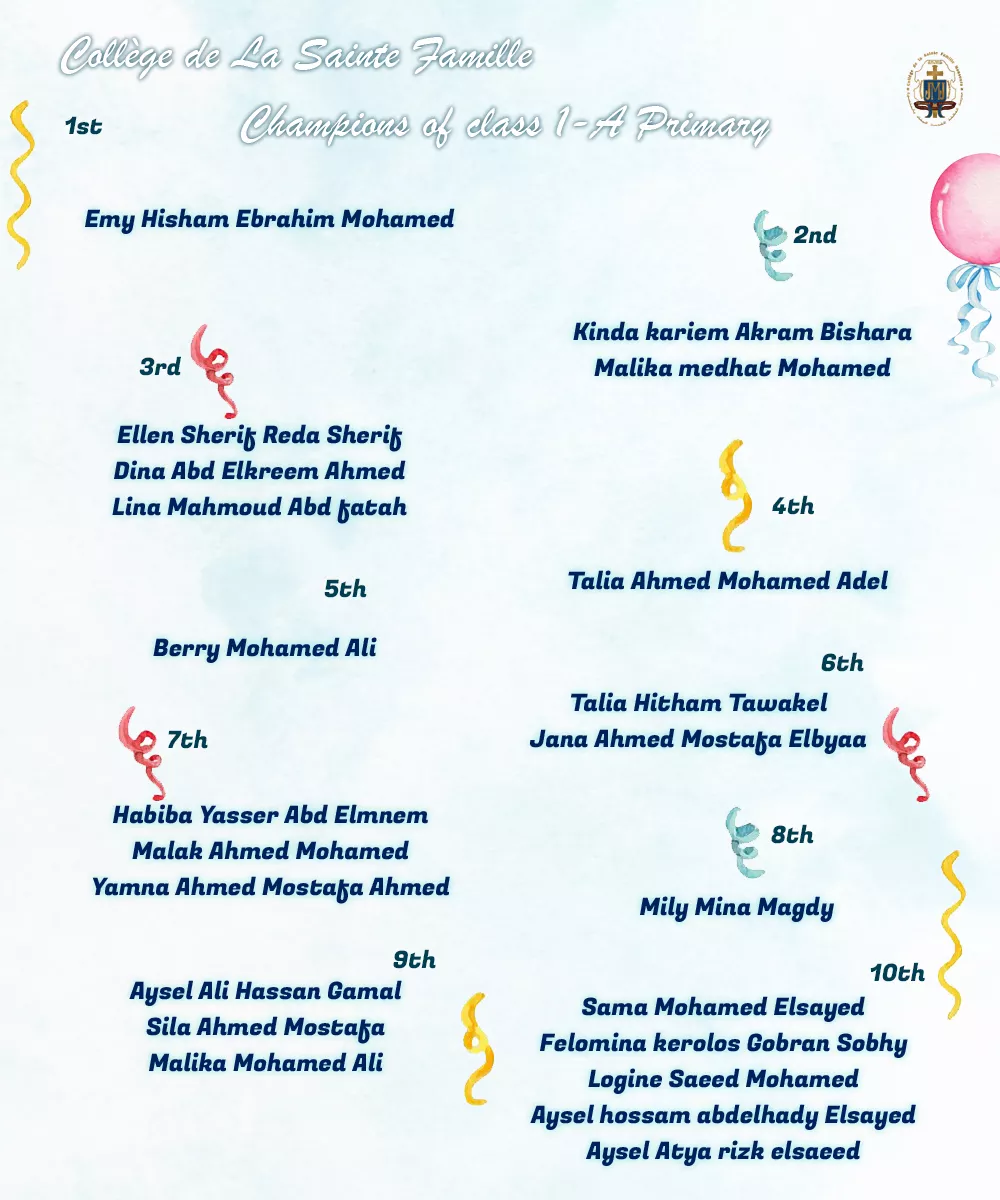 Collège de La Sainte Famille
Champions of class 1-A Primary
1st
Emy Hisham Ebrahim Mohamed
2nd
Kinda kariem Akram Bishara
Malika medhat Mohamed
3rd
Ellen Sherif Reda Sherif
Dina Abd Elkreem Ahmed
Lina Mahmoud Abd fatah
4th
Talia Ahmed Mohamed Adel
5th
Berry Mohamed Ali
6th
Talia Hitham Tawakel
Jana Ahmed Mostafa Elbyaa
7th
Habiba Yasser Abd Elmnem
Malak Ahmed Mohamed
Yamna Ahmed Mostafa Ahmed
8th
Mily Mina Magdy
9th
Aysel Ali Hassan Gamal
Sila Ahmed Mostafa
Malika Mohamed Ali
10th
Sama Mohamed Elsayed
Felomina kerolos Gobran Sobhy
Logine Saeed Mohamed
Aysel hossam abdelhady Elsayed
Aysel Atya rizk elsaeed